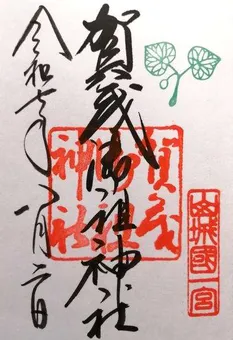 賀茂御祖神社
令和七年八月二日
賀茂御祖神社
山城國一宮